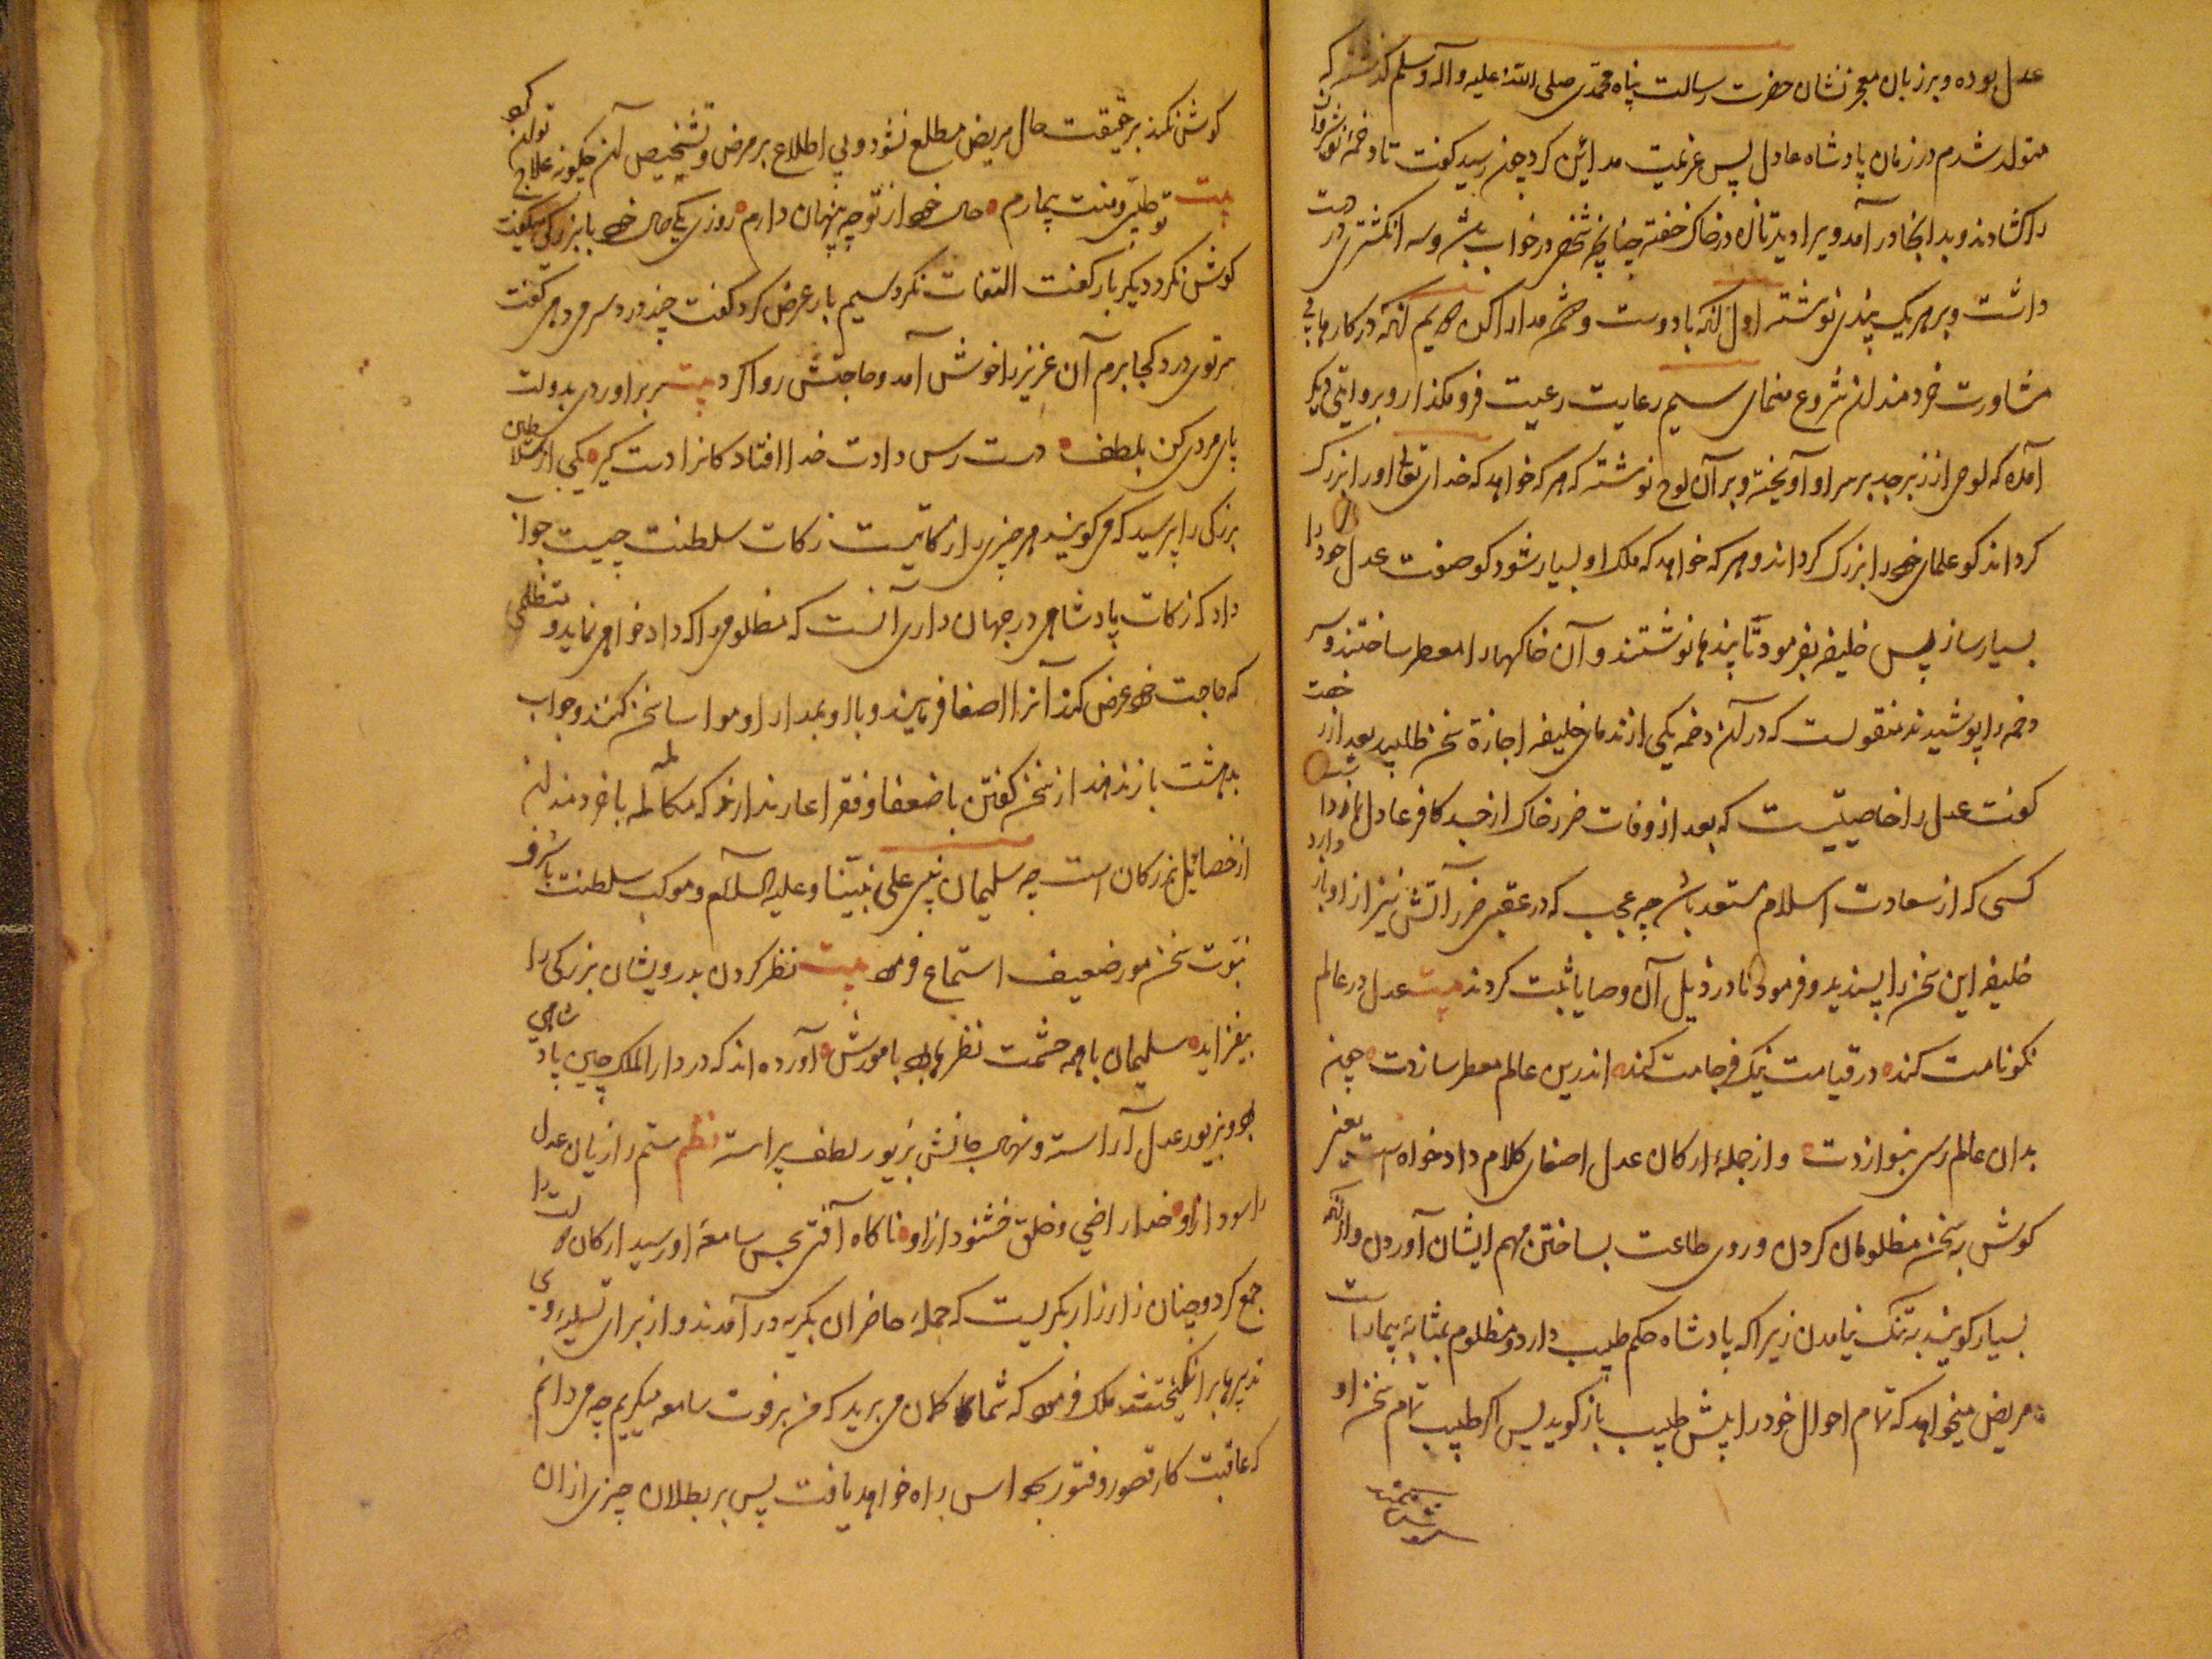 عدل بوده و بر زبان معجز نشان حضرت رسالت پناه محمدی صلی الله علیه و آله و سلم گذشته که
متولد شدم در زمان پادشاه عادل پس عزیمت مداین کرد چون رسید گفت تا دخمه نوشروان
را گشادند و بدانجا در آمد ویرا دید تازه در خاک خفته چنانچه شخصی در خواب باشد و سه انگشتری در دست
داشت و بر هر یک پندی نوشته اول آنکه با دوست و دشمن مدارا کن دویم آنکه در کارها بی
مشاورت خردمندان شروع منمای سیم رعایت رعیت فرو مگذار و بروایتی دیگر
آمده که لوحی از زبرجد بر سر او آویخته و بر آن لوح نوشته که هر که خواهد که خدای تعالی او را بزرگ
گرداند گو علمای خود را بزرگ گرداند و هر که خواهد که ملک او بسیار شود گو صفت عدل خود را
بسیار ساز پس خلیفه بفرمود تا پندها نوشتند و آن خاکها را معطر ساختند و سر
دخمه را پوشیدند منقولست که در آن دخمه یکی از ندمای خلیفه اجازة سخن طلبید بعد از رخصت
گفت عدل را خاصیتیست که بعد از وفات ضرر خاک از جسد کافر عادل باز دارد
کسی که از سعادت اسلام مستعد باشد چه عجب که در عقبی ضرر آتش نیز از او باز دارد
خلیفه این سخن را پسندید و فرمود تا در ذیل آن وصایا ثبت کردند بیت عدل در عالم
نکونامت کند در قیامت نیک فرجامت کند اندرین عالم معطر سازدت چون
بدان عالم رسی بنوازدت و از جمله ارکان عدل اصغای کلام داد خواه است یعنی
گوش به سخن مظلومان کردن و روی طاعت بساختن مهم ایشان آوردن و از آنکه
بسیار گویند به تنگ نیامدن زیرا که پادشاه حکم طبیب دارد و مظلوم بمثابه بیمار است
مریض میخواهد که تمام احوال خود را پیش طبیب باز گوید پس اگر طبیب تمام سخن او
گوش نکند
گوش نکند بر حقیقت حال مریض مطلع نشود و بی اطلاع بر مرض و تشخیص آن چگونه علاج تواند کرد
بیت تو طبیبی و منت بیمارم حال خود از تو چه پنهان دارم روزی یکی حال خود با بزرگی میگفت
گوش نکرد دیگر بار گفت التفات نکرد سیم بار عرض کرد گفت چند درد سر میدهی گفت
سر توئی درد کجا برم آن عزیز را خوش آمد و حاجتش روا کرد بیت سر برآوردی بدولت
پای مردی کن بلطف دست رس دادت خدا افتادگانرا دست گیر یکی از سلاطین
بزرگی را پرسید که می گویند هر چیزی را زکاتیست زکات سلطنت چیست جواب
داد که زکات پادشاهی در جهان داری آنست که مظلومی را که داد خواهی نماید و متظلمی
که حاجت خود عرض کند آنرا اصغا فرمایند و با او بمدارا و مواسا سخن کنند و جواب
بدرشت باز ندهند از سخن گفتن با ضعفا و فقرا عار ندارند که مکالمه با خردمندان
از خصائل بزرگان است چه سلیمان نبی علی نبینا و علیه السلام و موکب سلطنت با شرف
نبوت سخن مور ضعیف استماع فرمود بیت نظر کردن بدرویشان بزرگی را
بیفزاید سلیمان با همه حشمت نظرها بود با مورش آورده اند که در دار الملک چین پادشاهی
بود بزیور عدل آراسته و نهال جانش بزیور لطف پیراسته نظم ستم را زیان عدل
را سود از او خدا راضی و خلق خشنود از او ناگاه آفتی بحس سامعه او رسید ارکان دولت را
جمع کرد و چنان زار زار بگریست که جمله حاضران بگریه در آمدند و از برای تسلیه وی
تدبیرها بر انگیختند ملک فرمود که شما گمان می برید که من بر فوت سامعه میگریم چه میدانم
که عاقبت کار قصور و فتور بحواس راه خواهد یافت پس بر بطلان چیزی از آن